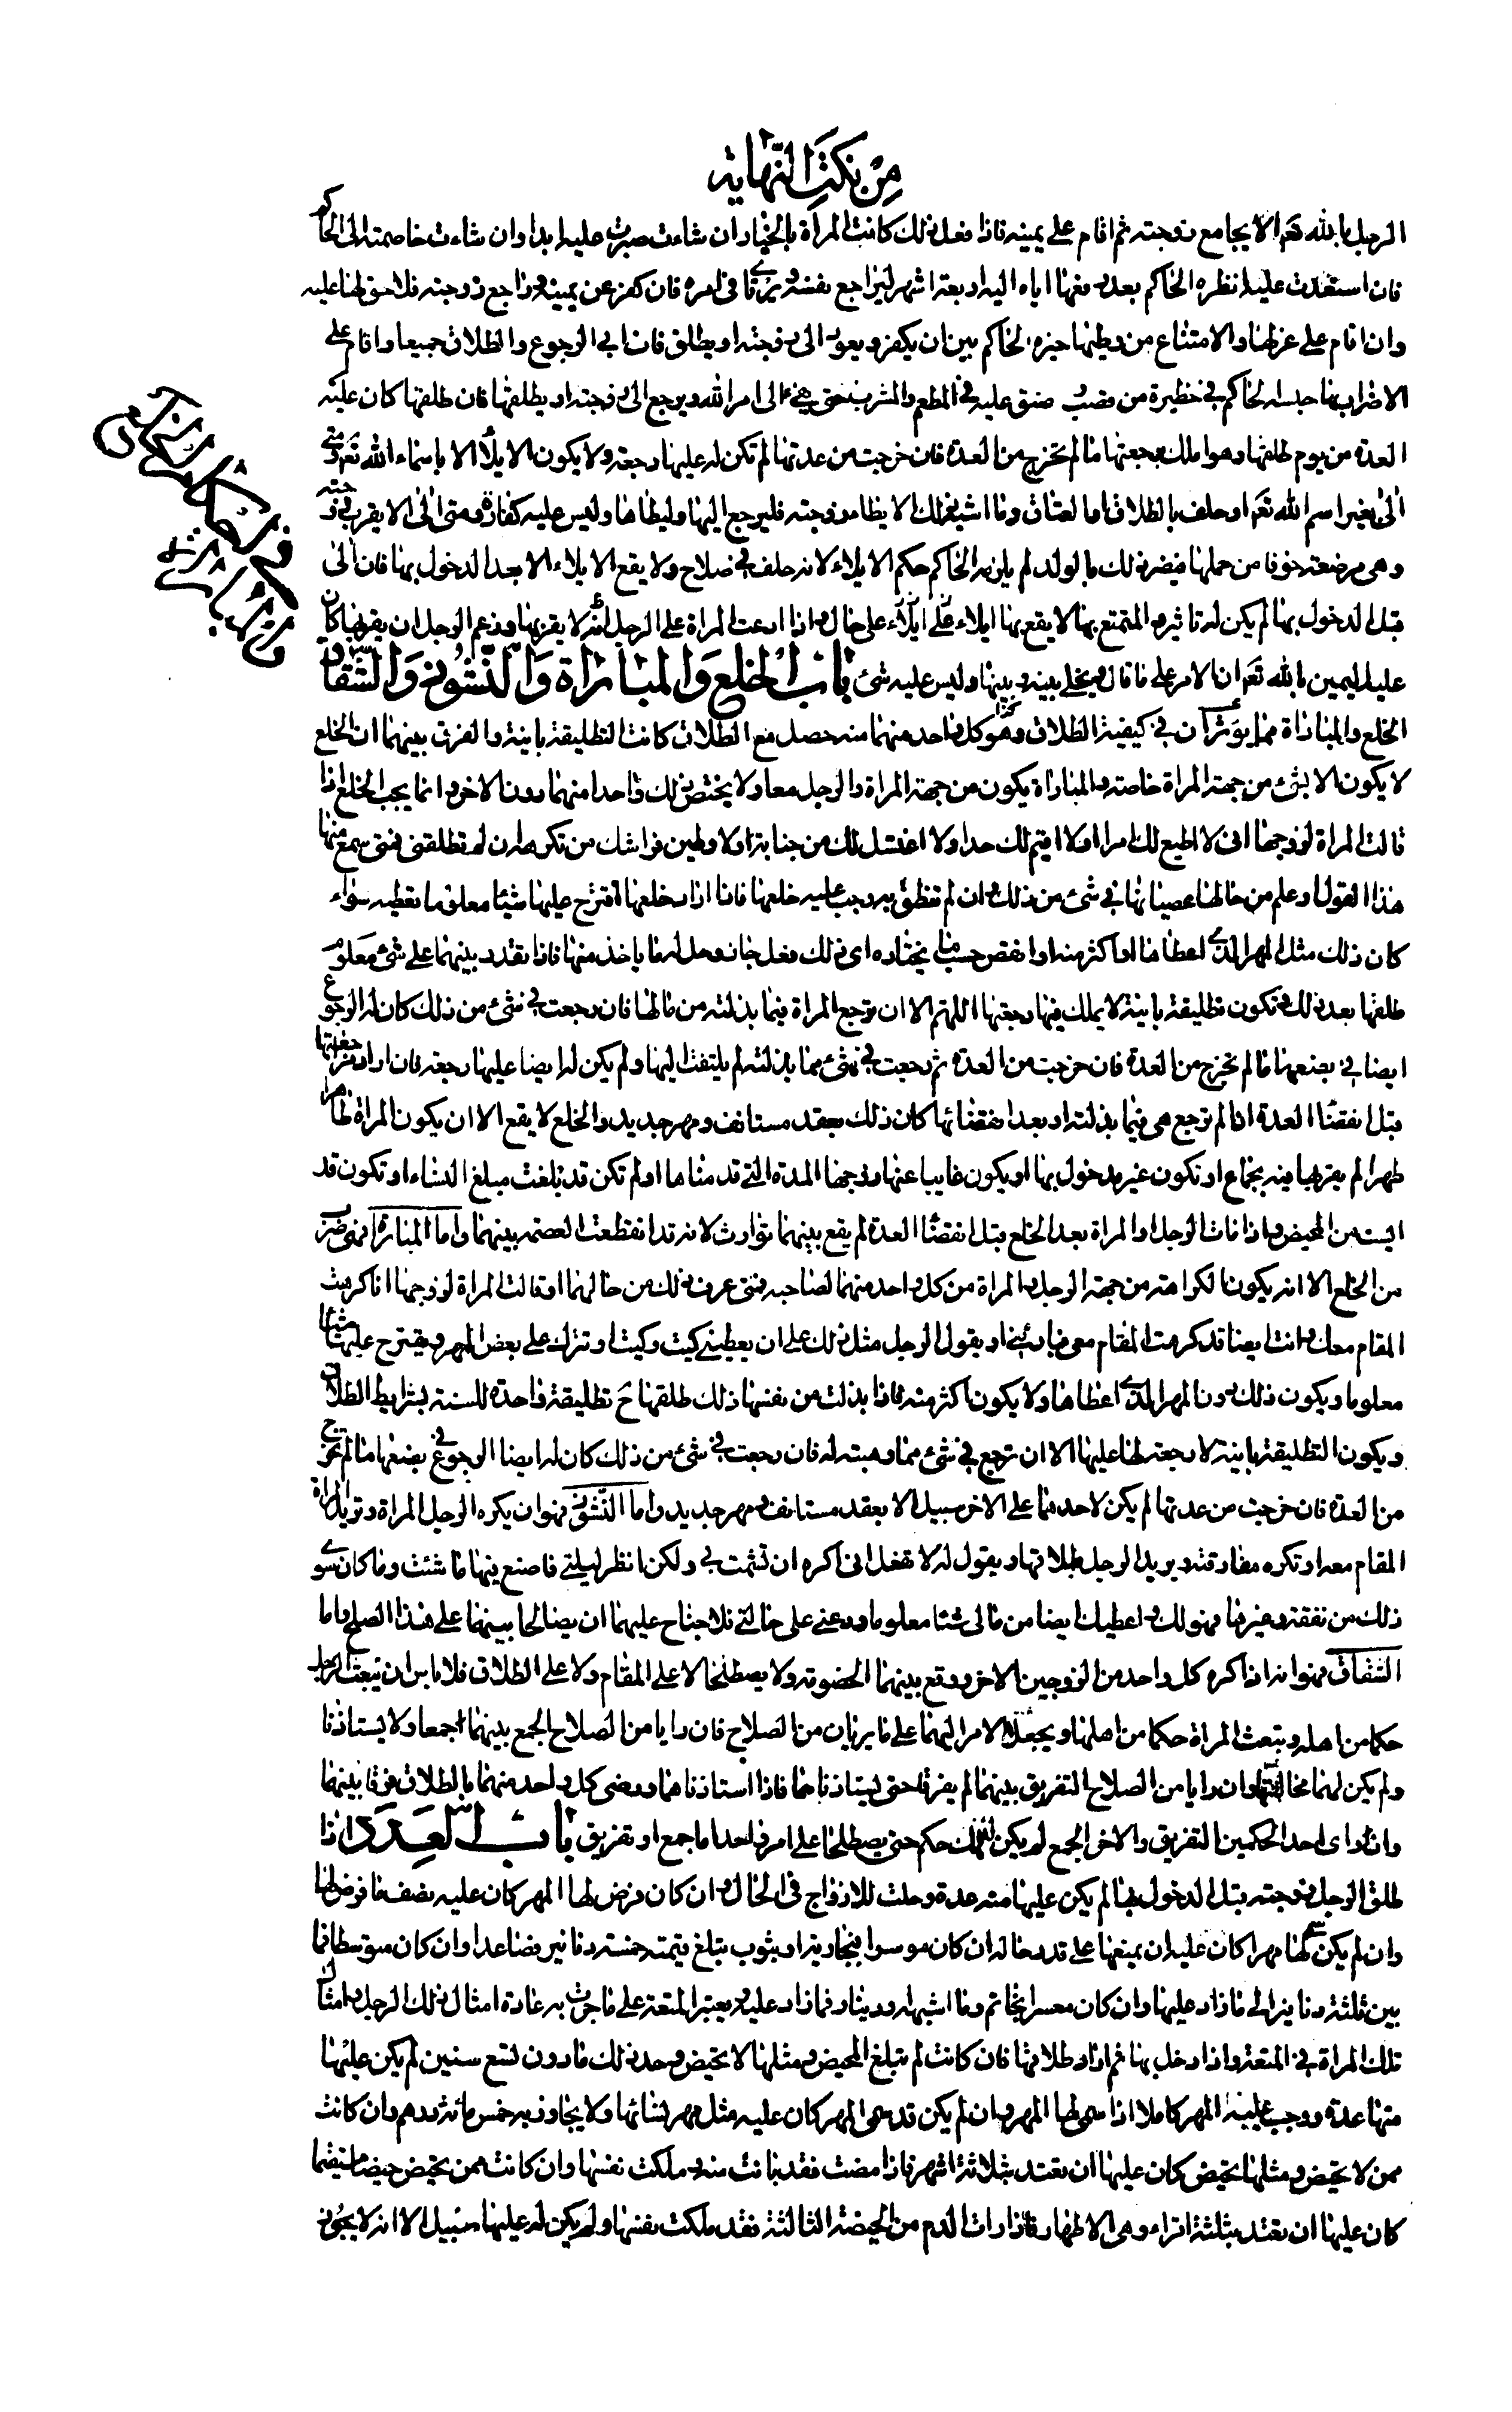 من نكت النهاية
الرجل بالله تعم الا يجامع زوجته ثم اقام على يمينه فاذا فعل ذلك كانت المراة بالخيار ان شاءت صبرت عليه ابدا وان شاءت خاصمته الى الحاكم
فان استعدت عليه انظره الحاكم بعد رفعها اياه اليه اربعة اشهر ليراجع نفسه ويرتاى في امره فان كفر عن يمينه وراجع زوجته فلا حق لها عليه
وان اقام على عزلها والامتناع من وطئها خيره الحاكم بين ان يكفر ويعود الى زوجته او يطلق فان ابى الرجوع والطلاق جميعا واقام على
الاضرار بها حبسه الحاكم في حظيرة من قصب وضيق عليه في المطعم والمشرب حتى يفيء الى امر الله ويرجع الى زوجته او يطلقها فان طلقها كان عليه
العدة من يوم طلقها وهو املك برجعتها ما لم تخرج من العدة فان خرجت من عدتها لم تكن له عليها رجعة ولا يكون الايلاء الا باسماء الله تعم ومتى
الى بغير اسم الله تعم او حلف بالطلاق او العتاق وما اشبه ذلك الا يطا زوجته فليرجع اليها وليطاها وليس عليه كفارة ومتى الى الا يقرب زوجته
وهي مرضعة خوفا من حملها فيضر ذلك بالولد لم يلزمه الحاكم حكم الايلاء لانه حلف في صلاح ولا يقع الايلاء الا بعد الدخول بها فان الى
قبل الدخول بها لم يكن له تاثير والمتمتع بها لا يقع بها ايلاء على حال واذا ادعت المراة على الرجل انه لا يقربها وزعم الرجل ان يقربها كان
عليه اليمين بالله تعم ان الامر على ما قال ويخلى بينه وبينها وليس عليه شئ باب الخلع والمباراة والنشوز والشقاق
الخلع والمباراة مما يوثران في كيفية الطلاق وهو كل واحد منهما متى حصل مع الطلاق كانت التطليقة باينة والفرق بينهما ان الخلع
لا يكون الا بشئ من جهة المراة خاصة والمباراة يكون من جهة المراة والرجل معا ولا يختص ذلك واحدا منهما دون الاخر وانما يجب الخلع اذا
قالت المراة لزوجها انى لا اطيع لك امرا ولا اقيم لك حدا ولا اغتسل لك من جنابة ولا وطين فراشك من تكرهه ان لم تطلقني فمتى سمع منها
هذا القول او علم من حالها عصيانها في شئ من ذلك وان لم تنطق به وجب عليه خلعها فاذا اراد خلعها اقترح عليها شيئا معلوما تعطيه سواء
كان ذلك مثل المهر الذي اعطاها او اكثر منه او انقص حسب ما يختاره اى ذلك فعل جاز وحل له ما ياخذ منها فاذا تقرر بينهما على شئ معلوم
طلقها بعد ذلك وتكون تطليقة باينة لا يملك فيها رجعتها اللهم الا ان ترجع المراة فيما بذلته من مالها فان رجعت في شئ من ذلك كان له الرجوع
ايضا في بضعها ما لم تخرج من العدة فان خرجت من العدة ثم رجعت في شئ مما بذلته لم يلتفت اليها ولم يكن له ايضا عليها رجعة فان اراد مراجعتها
قبل انقضاء العدة اذا لم ترجع هي فيما بذلته او بعد انقضائها كان ذلك بعقد مستانف ومهر جديد والخلع لا يقع الا ان يكون المراة طاهرا
طهرا لم يقربها فيه بجماع او تكون غير مدخول بها او يكون غايبا عنها زوجها المدة التي قدمناها او لم تكن قد بلغت مبلغ النساء او تكون قد
ايست من المحيض واذا مات الرجل او المراة بعد الخلع قبل انقضاء العدة لم يقع بينهما توارث لانه قد انقطعت العصمة بينهما واما المباراة فهي ضرب
من الخلع الا انه يكون الكراهة من جهة الرجل والمراة من كل واحد منهما لصاحبه فمتى عرف ذلك من حالهما او قالت المراة لزوجها انا كرهت
المقام معك وانت ايضا قد كرهت المقام معي فبارئني او يقول الرجل مثل ذلك على ان يعطينى كيت وكيت او تترك على بعض المهر ويقترح عليها شيئا
معلوما ويكون ذلك دون المهر الذي اعطاها ولا يكون اكثر منه فاذا بذلت من نفسها ذلك طلقها ح تطليقة واحدة للسنة بشرايط الطلاق
ويكون التطليقة باينة لا رجعة لها عليها الا ان ترجع في شئ مما وهبته له فان رجعت في شئ من ذلك كان له ايضا الرجوع في بضعها ما لم تخرج
من العدة فان خرجت من عدتها لم يكن لاحدهما على الاخر سبيل الا بعقد مستانف ومهر جديد واما النشوز فهو ان يكره الرجل المراة وتريد المراة
المقام معه وتكره مفارقته ويريد الرجل طلاقها ويقول له لا تفعل انى اكره ان تشمت بي ولكن انظر ليلتي فاصنع فيها ما شئت وما كان سوى
ذلك من نفقة وغيرها فهو لك واعطيك ايضا من مالى شئا معلوما ودعني على حالتي فلا جناح عليهما ان يصالحا بينهما على هذا الصلح واما
الشقاق فهو انه اذا كره كل واحد من الزوجين الاخر ووقع بينهما الخصومة ولا يصطلحا لا على المقام ولا على الطلاق فلا باس ان يبعث الرجل
حكما من اهله وتبعث المراة حكما من اهلها ويجعلا الامر اليهما على ما يريان من الصلاح فان رايا من الصلاح الجمع بينهما جمعا ولا يستاذنا
ولم يكن لهما مخالفتهما وان رايا من الصلاح التفريق بينهما لم يفرقا حتى يستاذناهما فاذا استاذناهما ورضى كل واحد منهما بالطلاق فرقا بينهما
وان راى احد الحكمين التفريق والاخر الجمع لم يكن لذلك حكم حتى يصطلحا على امر واحد اما جمع او تفريق باب العدد اذا
طلق الرجل زوجته قبل الدخول بها لم يكن عليها منه عدة وحلت للازواج في الحال وان كان فرض لها المهر كان عليه نصف ما فرض لها
وان لم يكن سمى لها مهرا كان عليه ان يمتعها على قدر حاله ان كان موسرا بجارية او بثوب يبلغ قيمته خمسة دنانير فصاعدا وان كان متوسطا فما
بين ثلثة دنانير الى ما زاد عليها وان كان معسرا بخاتم وما اشبهه ودينار فما زاد عليه ويعتبر المتعة على ما جرت به عادة امثال ذلك الرجل وامثال
تلك المراة في المتعة واذا دخل بها ثم اراد طلاقها فان كانت لم تبلغ المحيض ومثلها لا يحيض وحد ذلك ما دون تسع سنين لم يكن عليها
منها عدة ووجب عليه المهر كاملا اذا سمى لها المهر وان لم يكن قد سمى المهر كان عليه مثل مهر نسائها ولا يجاوز به خمس مائة درهم وان كانت
ممن لا يحيض ومثلها يحيض كان عليها ان تعتد بثلاثة اشهر فاذا مضت فقد بانت منه وملكت نفسها وان كانت ممن يحيض حيضا مستقيما
كان عليها ان تعتد بثلثة اقراء وهي الاطهار فاذا رات الدم من الحيضة الثالثة فقد ملكت نفسها ولم يكن له عليها سبيل الا انه لا يجوز
في احكام الخلع
والمباراة